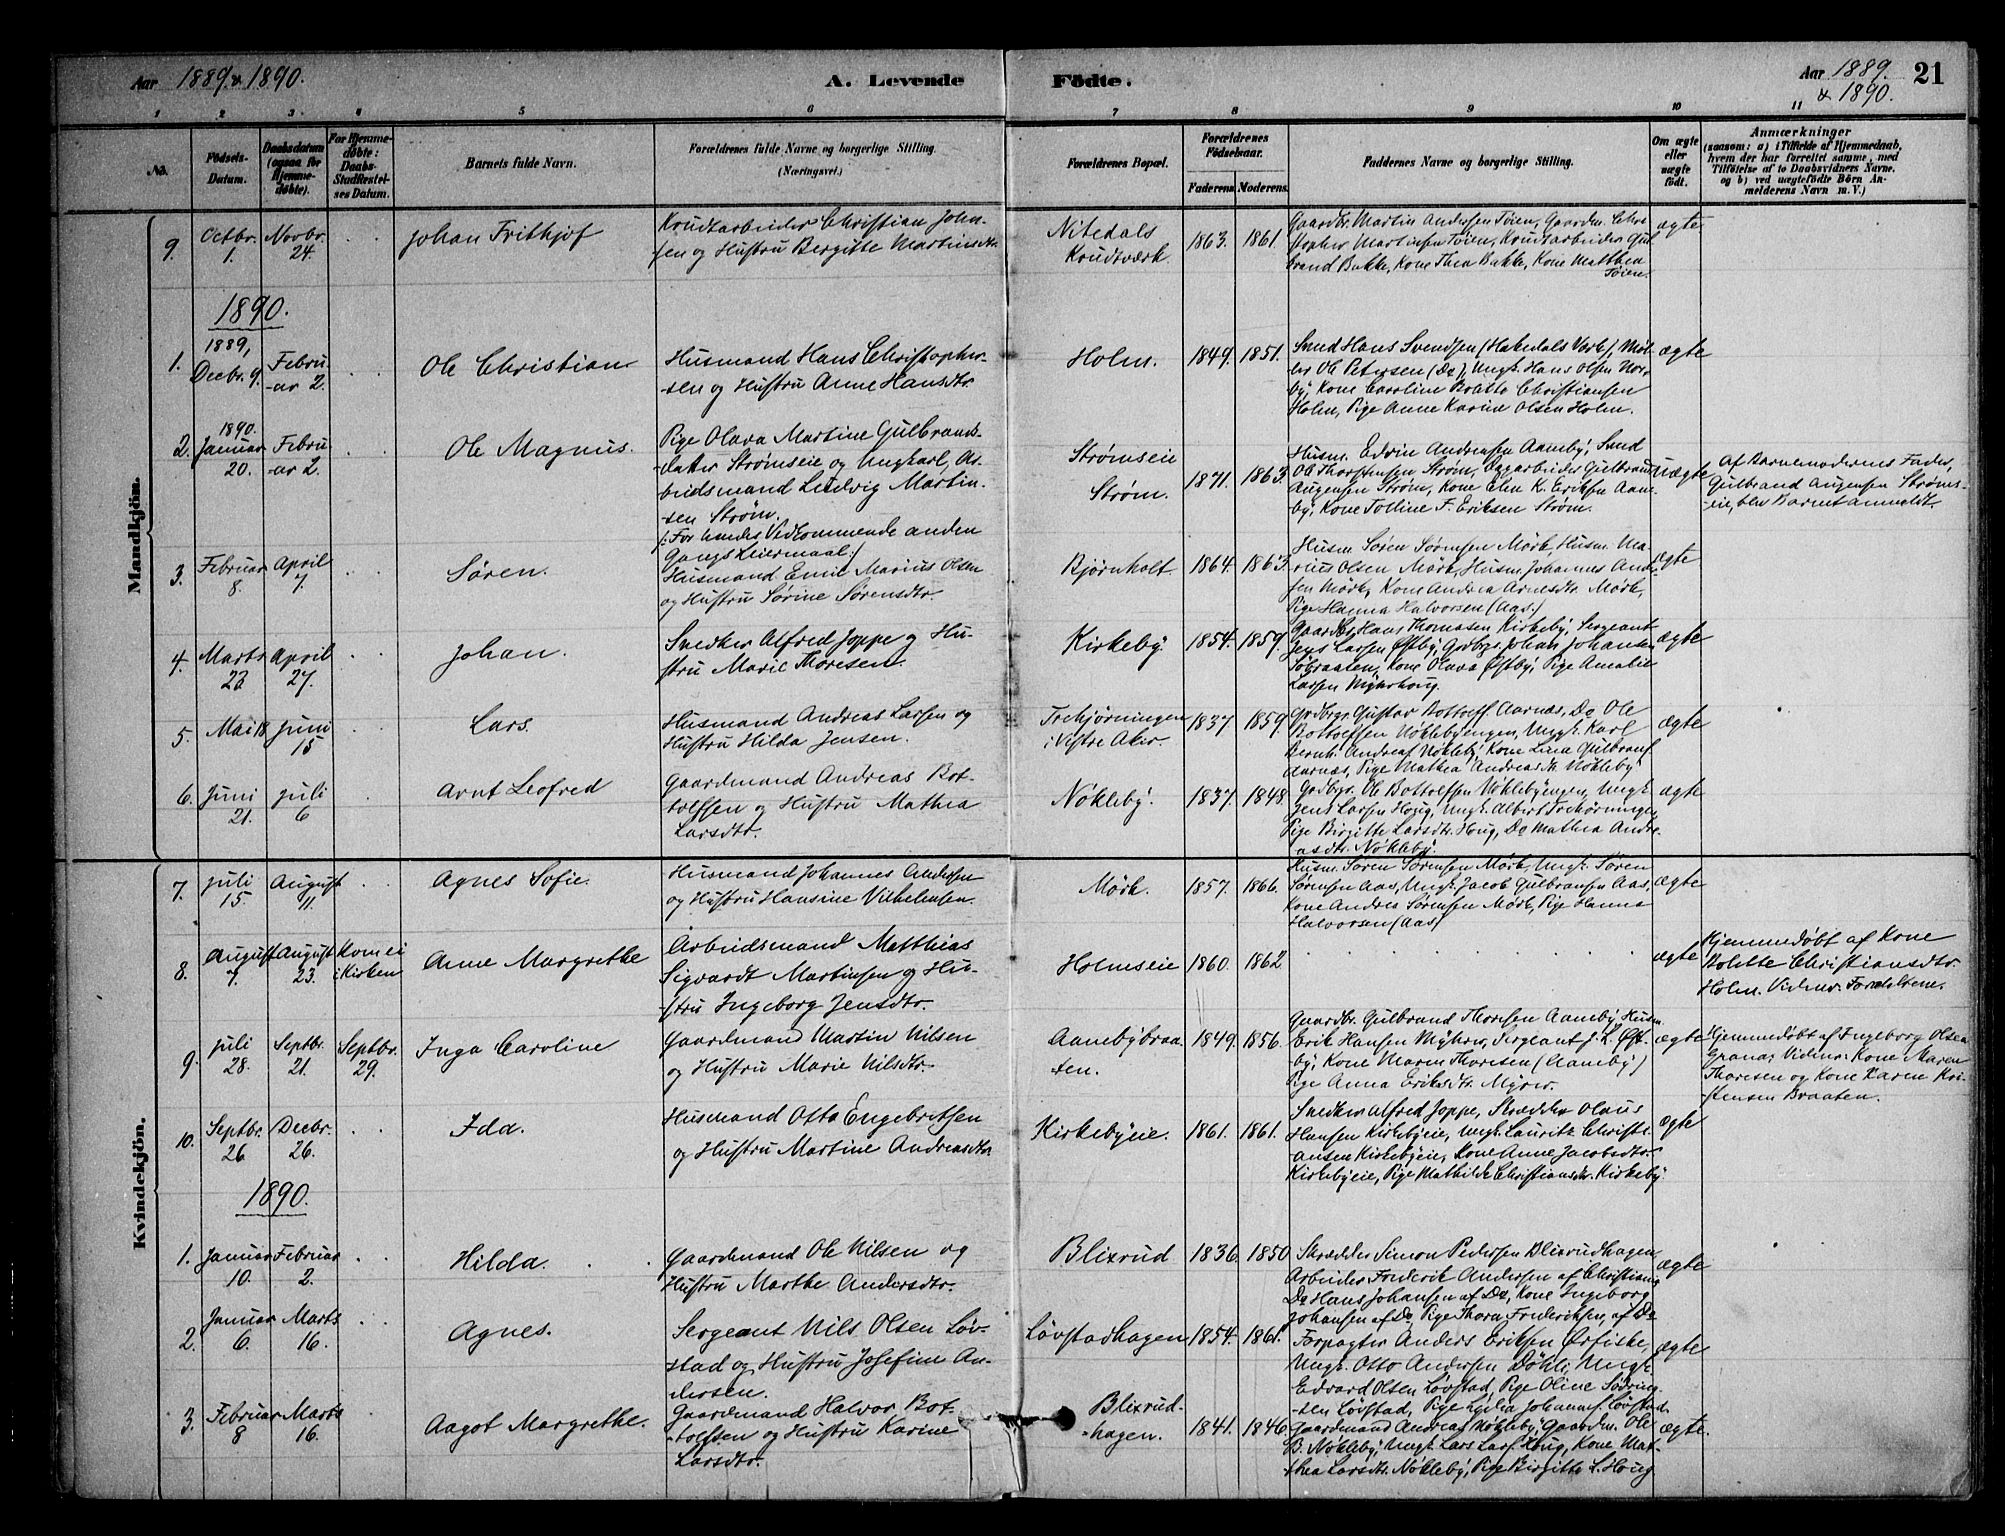 Aar 1889 & 1890.
A. Levende
Fødte.
Aar 1889.
& 1890.
21
1 2 3 4 5 6 7 8 9 10 11
No.
Fødsels-
Datum.
Daabsdatum
(ogsaa for
Hjemme-
døbte).
For Hjemme-
døbte:
Daabs-
Stadfæstel-
ses Datum.
Barnets fulde Navn.
Forældrenes fulde Navne og borgerlige Stilling.
(Næringsvei.)
Forældrenes Bopæl.
Forældrenes
Fødselsaar.
Faderens. Moderens.
Faddernes Navne og borgerlige Stilling.
Om ægte
eller
uægte
født.
Anmærkninger
(saasom: a) i Tilfælde af Hjemmedaab,
hvem der har forrettet samme, med
Tilføielse af to Daabsvidners Navne,
og b) ved uægtefødte Børn An-
melderens Navn m. V.)
Mandkjøn.
9.
Octbr.
1.
Novbr.
24.
Johan Frithjof
Krudtarbeider Christian John-
sen og Hustru Bergitte Martinsdtr.
Nitedals
Krudtværk.
1863. 1861.
Gaardbr. Martin Andersen Tøien, Gaardm. Chri-
stopher Martinsen Tøien, Krudtarbeider Gul
brand Bakke, Kone Thea Bakke, Kone Matthea
Tøien.
ægte
1890.
1.
1889,
Decbr. 9.
Febru
-ar 2.
Ole Christian
Husmand Hans Christopher-
sen og Hustru Anne Hansdtr.
Holm.
1849. 1851.
Smed Hans Svendsen (Hakedals Verk), Møl-
ler Ole Petersen (Do), Ungk. Hans Olsen Nor-
by, Kone Caroline Bolette Christiansen
Holm, Pige Anne Karine Olsen Holm.
ægte
2.
1890.
Januar
20.
Febru
-ar 2.
Ole Magnus.
Pige Olava Martine Gulbrands-
datter Strømseie og Ungkarl, Ar-
beidsmand Ludvig Martin-
-sen Strøm.
/: For hendes Vedkommende anden
Gangs Leiermaal :/
Strømseie
Strøm.
1871. 1863.
Husm. Edvin Andreasen Aamby, Smed
Ole Thorstensen Strøm, Gulbrand
Augensen Strøm, Kone Elen K. Eriksen Aam-
by, Kone Tolline F. Eriksen Strøm.
uægte
Af Barnemoderens Fader,
Gulbrand Augensen Strøms-
eie, blev Barnet anmeldt.
3.
Februar
8.
April
7.
Søren.
Husmand Emil Marius Olsen
og Hustru Sørine Sørensdtr.
Bjørnholt.
1864. 1863.
Husm. Søren Sørensen Mørk, Husm. Ma-
rius Olsen Mørk, Husm. Johannes Ander-
sen Mørk, Kone Andrea Arnesdtr. Mørk,
Pige Hanna Halvorsen (Aas.)
ægte
4.
Marts
23.
April
27.
Johan.
Snedker Alfred Joppe og Hu-
stru Marie Thoresen.
Kirkeby.
1854. 1859.
Gaardbr Hans Thomasen Kirkeby, Sergeant
Jens Larsen Østby, Grdbrgr. Johan Johansen
Søbraaten, Kone Olava Østby, Pige Amalie
Larsen Myhrhoug.
ægte
5.
Mai 18
Juni
15.
Lars.
Husmand Andreas Larsen og
Hustru Hilda Jensen.
Trehjørningen
i Vestre Aker.
1837. 1859.
Grdbrgr. Gustav Bottolf Aarnæs, Do Ole
Bottolfsen Nøklebyengen, Ungk. Karl
Bernh. Andreas Nøkleby, Kone Lina Gulbrans
Aarnæs, Pige Mathea Andreasdtr. Nøkleby
ægte
6.
Juni
21.
Juli
6
Arnt Leofred
Gaardmand Andreas Bot-
tolfsen og Hustru Mathea
Larsdtr.
Nøkleby.
1837. 1848.
Grdbgr. Ole Bottolfsen Nøklebyengen, Ungk.
Jens Larsen Houg, Ungk. Albert Trehørningen,
Pige Birgitte Larsdtr. Houg, Do Mathea Andre-
asdtr. Nøkleby.
ægte
Kvindekjøn.
7.
Juli
15
August
11.
Agnes Sofie.
Husmand Johannes Andersen
og Hustru Hansine Vilhelmsen.
Mørk.
1857. 1866.
Husm. Søren Sørensen Mørk, Ungk. Søren
Sørensen Aas, Ungk. Jacob Gulbransen Aas,
Kone Andrea Sørensen Mørk, Pige Hanna
Halvorsen (Aas)
ægte
8.
August
7.
August
23.
Kom ei
i Kirken
Anne Margrethe
Arbeidsmand Matthias
Sigvardt Martinsen og Hu-
stru Ingeborg Jensdtr.
Holmseie
1860. 1862
ægte
Hjemmedøbt af Kone
Bolette Christiansdtr.
Holm. Vidner: Forældrene.
9.
Juli
28.
Septbr.
21.
Septbr.
29.
Inga Caroline
Gaardmand Martin Nilsen
og Hustru Marie Nilsdtr.
Aamebybraa-
-ten.
1849. 1856.
Gaardbr. Gulbrand Thoresen Aameby, Husm.
Erik Hansen Myhrer, Sergeant J. L. Øst-
by, Kone Maren Thoresen (Aameby)
Pige Anna Eriksdtr. Myrer.
ægte
Hjemmedøbt af Ingeborg Olsen
Grana; Vidner: Kone Maren
Thoresen og Kone Karen Kri-
stensen Braaten.
10.
Septbr.
26.
Decbr.
26.
Ida.
Husmand Otto Engebretsen
og Hustru Martine Andreasdtr.
Kirkebyeie.
1861. 1861.
Snedker Alfred Joppe, Skrædder Olaus
Hansen Kirkebyeie, Ungk. Lauritz Christi-
ansen Kirkebyeie, Kone Anne Jacobsdtr.
Kirkebyeie, Pige Mathilde Christiansdtr. Kirkeby.
ægte
1890.
1.
Januar
10.
Februar
2.
Hilda.
Gaardmand Ole Nilsen og
Hustru Marthe Andersdtr.
Blixrud
1836. 1850
Skrædder Simon Pedersen Blixrudhagen,
Arbeider Frederik Andersen af Christiania,
Do Hans Johansen af Do, Kone Ingeborg
Johansen af Do, Pige Thora Frederiksen, af Do
ægte
2.
Januar
6.
Marts
16.
Agnes.
Sergeant Nils Olsen Løv-
stad og Hustru Josefine An-
dersen.
Løvstadhagen
1854. 1861.
Forpagter Anders Eriksen Ørfiske,
Ungk. Otto Andersen Døhli, Ungk.
Edvard Olsen Løvstad, Pige Oline
Løvstad, Pige Lydia Johansen Løvstad
ægte
3.
Februar
8
Marts
16.
Aagot Margrethe.
Gaardmand Halvor Bot-
-tolfsen og Hustru Karine
Larsdtr.
Blixrud-
-hagen.
1841. 1846.
Gaardmand Andreas Nøkleby, Gaardm. Ole
B. Nøkleby, Ungk. Lars Lars. Houg, Kone Mat-
thea Larsdtr. Nøkleby, Pige Birgitte L. Houg
ægte.